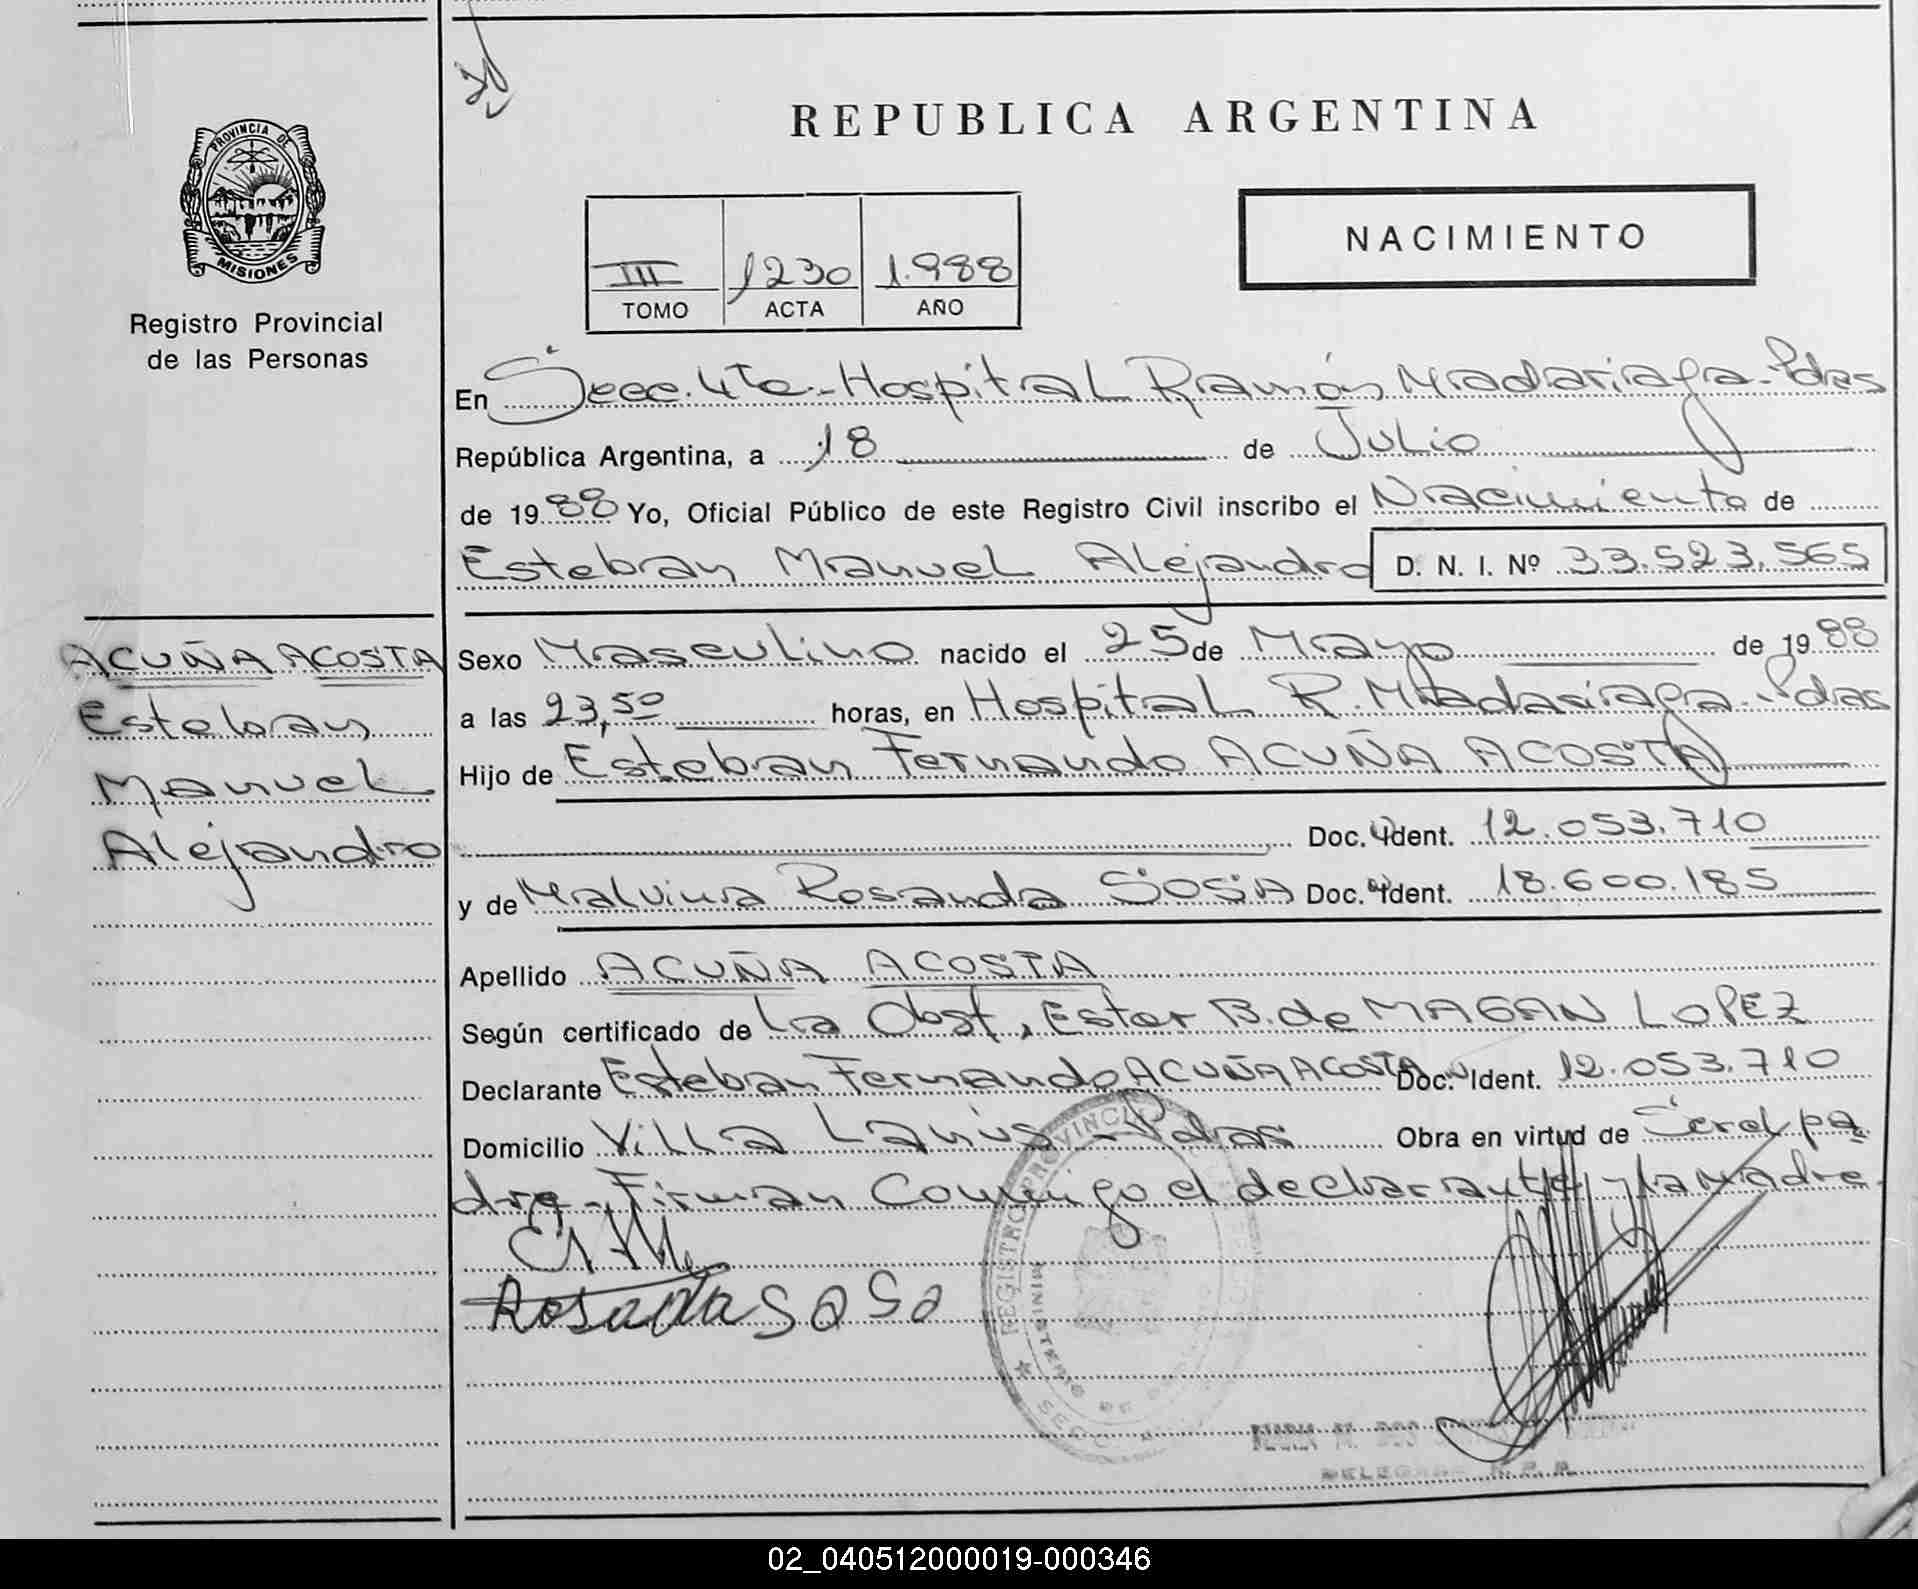 REPUBLICA ARGENTINA
PROVINCIA DE
MISIONES
Registro Provincial
de las Personas
NACIMIENTO
III 1230 1.988
TOMO ACTA AÑO
En Secc. 4ta.- Hospital Ramón Madariaga - Pdas
República Argentina, a 18 de Julio
de 1988 Yo, Oficial Público de este Registro Civil inscribo el Nacimiento de
Esteban Manuel Alejandro D. N. I. Nº 33.523.565
ACUÑA ACOSTA
Esteban
Manuel
Alejandro
Sexo Masculino nacido el 25 de Mayo de 1988
a las 23,50 horas, en Hospital R. Madariaga - Pdas
Hijo de Esteban Fernando ACUÑA ACOSTA
Doc. Ident. 12.053.710
y de Malvina Rosanda SOSA Doc. Ident. 18.600.185
Apellido ACUÑA ACOSTA
Según certificado de La Obst, Ester B. de MAGAN LOPEZ
Declarante Esteban Fernando ACUÑA ACOSTA Doc. Ident. 12.053.710
Domicilio Villa Lanús - Pdas Obra en virtud de Ser el pa
dre - Firman Conmigo el declarante y la madre.
Sosa
REGISTRO PROVINCIAL
SECC
DELEGADA R.P.P.
02_040512000019-000346